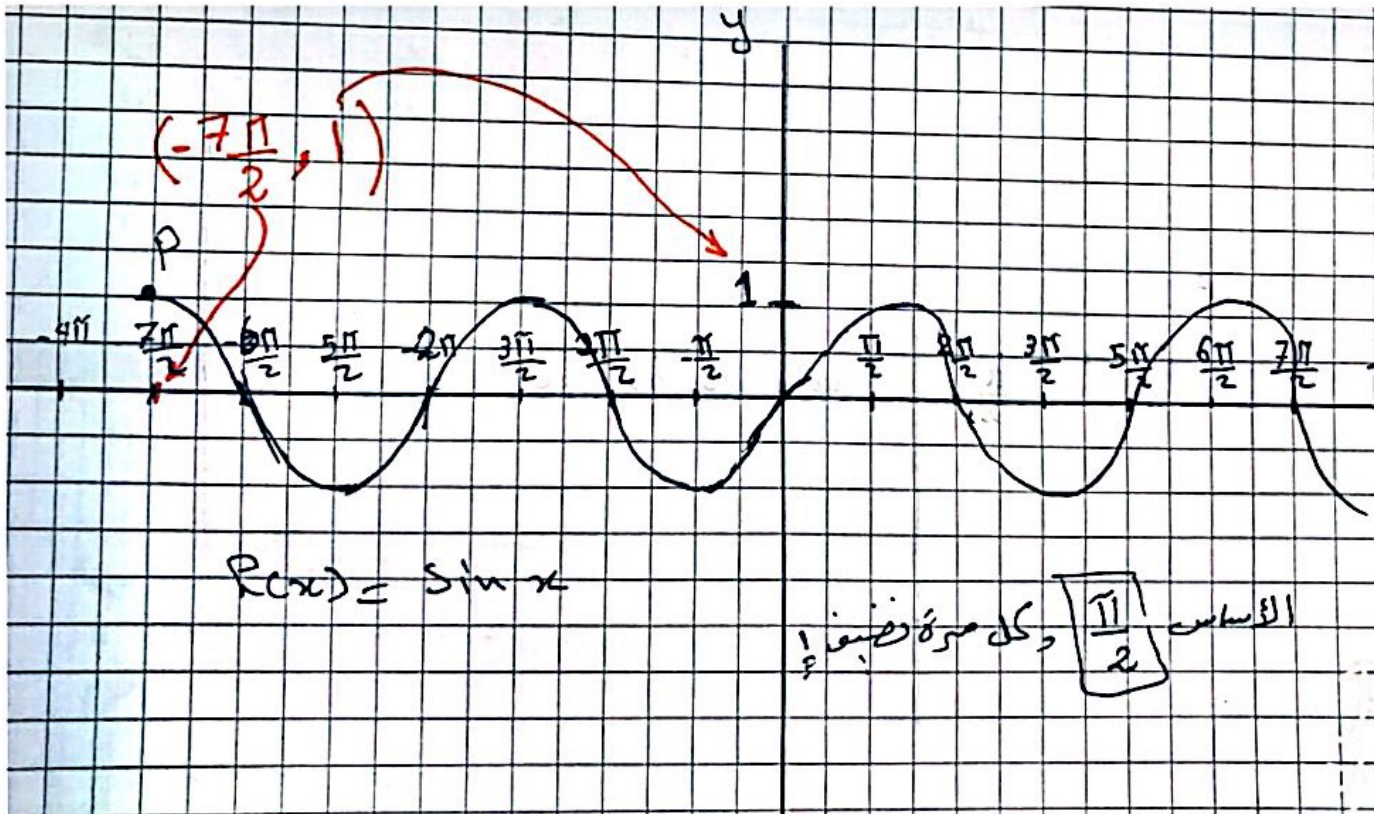 y
(-7π/2, 1)
P
1
-4π 7π/2 -6π/2 5π/2 -2π 3π/2 2π/2 -π/2 π/2 2π/2 3π/2 5π/2 6π/2 7π/2
R(x) = Sin x
الأساس π/2 وكل مرة نضيف 1